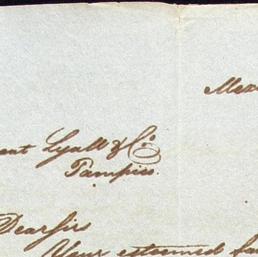 Mex
ent Lyall & Co.
Tampico.
Dear Sirs
Your esteemed fa